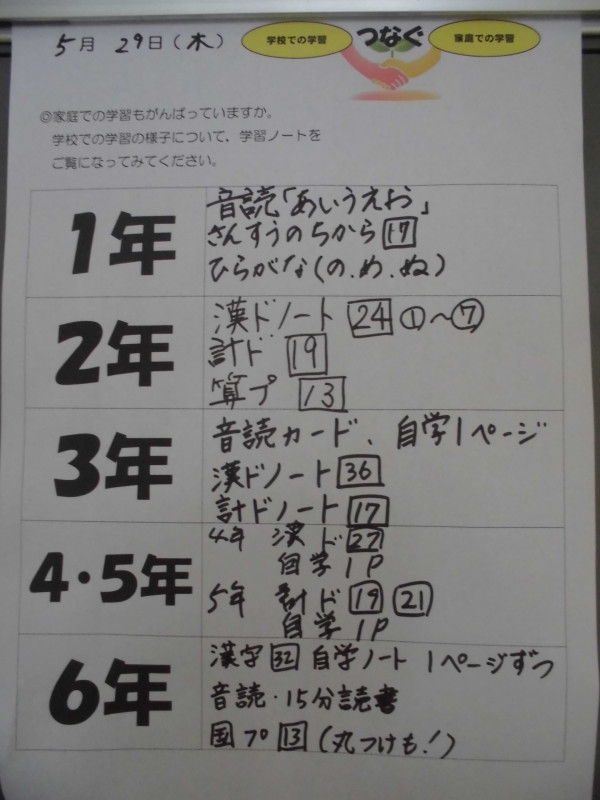 5月 29日(木)
学校での学習 つなぐ 家庭での学習
◎家庭での学習もがんばっていますか。
学校での学習の様子について、学習ノートを
ご覧になってみてください。
1年
音読「あいうえお」
さんすうのちから 17
ひらがな(の.め.ぬ)
2年
漢ドノート 24 ①~⑦
計ド 19
算プ 13
3年
音読カード、自学1ページ
漢ドノート 36
計ドノート 17
4・5年
4年 漢ド 27
自学 1P
5年 計ド 19 21
自学 1P
6年
漢字 32 自学ノート 1ページずつ
音読・15分読書
国プ 13 (丸つけも!)